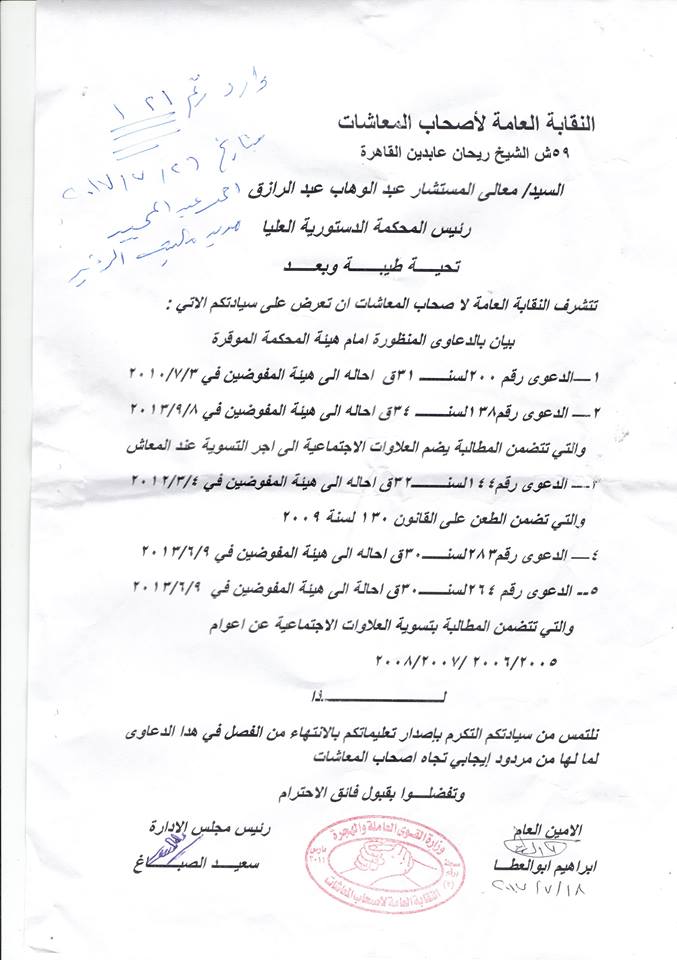 وارد رقم ١٢١
بتاريخ ٢٠١٧/٧/٢٦
احمد عبد المجيد
مدير مكتب الرئيس
النقابة العامة لأصحاب المعاشات
٥٩ش الشيخ ريحان عابدين القاهرة
السيد/ معالى المستشار عبد الوهاب عبد الرازق
رئيس المحكمة الدستورية العليا
تحيـة طيبـــة وبعــد
تتشرف النقابة العامة لا صحاب المعاشات ان تعرض على سيادتكم الاتي :
بيان بالدعاوى المنظورة امام هيئة المحكمة الموقرة
١ــالدعوى رقم ٢٠٠لسنــــ ٣١ق احاله الى هيئة المفوضين في ٢٠١٠/٧/٣
٢ــ الدعوى رقم١٣٨لسنــــ ٣٤ق احاله الى هيئة المفوضين في ٢٠١٣/٩/٨
والتي تتضمن المطالبة بضم العلاوات الاجتماعية الى اجر التسوية عند المعاش
ــ الدعوى رقم١٤٤لسنـــــ٣٢ق احاله الى هيئة المفوضين في ٢٠١٢/٣/٤
والتي تضمن الطعن على القانون ١٣٠ لسنة ٢٠٠٩
٤ــ الدعوى رقم٢٨٣لسنــــ٣٠ق احاله الى هيئة المفوضين في ٢٠١٣/٦/٩
٥ــ الدعوى رقم ٢٦٤لسنــــ٣٠ق احالة الى هيئة المفوضين في ٢٠١٣/٦/٩
والتي تتضمن المطالبة بتسوية العلاوات الاجتماعية عن اعوام
٢٠٠٨/٢٠٠٧/ ٢٠٠٦/٢٠٠٥
لــــــــــذا
نلتمس من سيادتكم التكرم بإصدار تعليماتكم بالانتهاء من الفصل في هدا الدعاوى
لما لها من مردود إيجابي تجاه اصحاب المعاشات
وتفضلــوا بقبول فائق الاحترام
الامين العام
ابراهيم ابوالعطا
٢٠١٧/٧/١٨
رئيس مجلس الادارة
سعيـد الصبـــاغ
وزارة القوى العاملة والهجرة
مارس
٢٠١١
النقابة العامة لأصحاب المعاشات